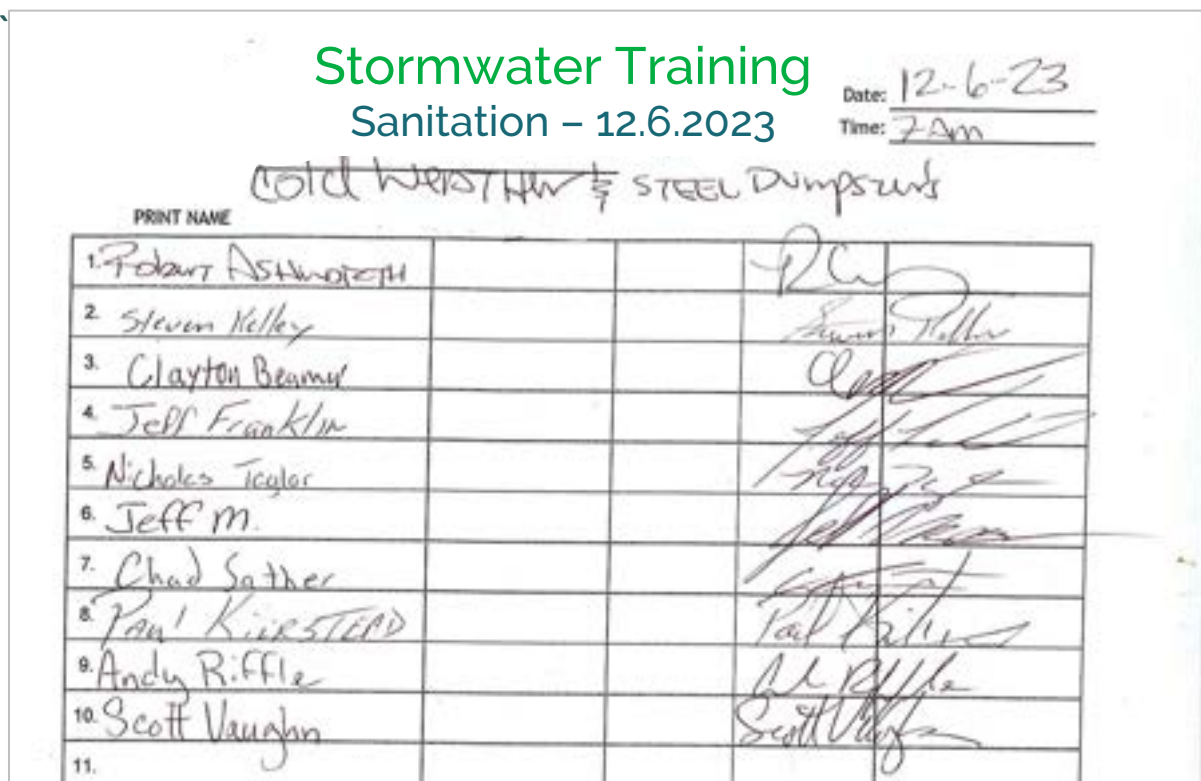 Stormwater Training
Sanitation – 12.6.2023
Date: 12-6-23
Time: 7 Am
Cold WEATHER & STEEL Dumpsters
PRINT NAME
1. Robert ASHWORTH
2. Steven Kelley
3. Clayton Beamer
4. Jeff Franklin
5. Nicholas Taylor
6. Jeff M.
7. Chad Sather
8. Paul KiERSTEAD
Paul
9. Andy Riffle
Riffle
10. Scott Vaughn
Scott Vaughn
11.